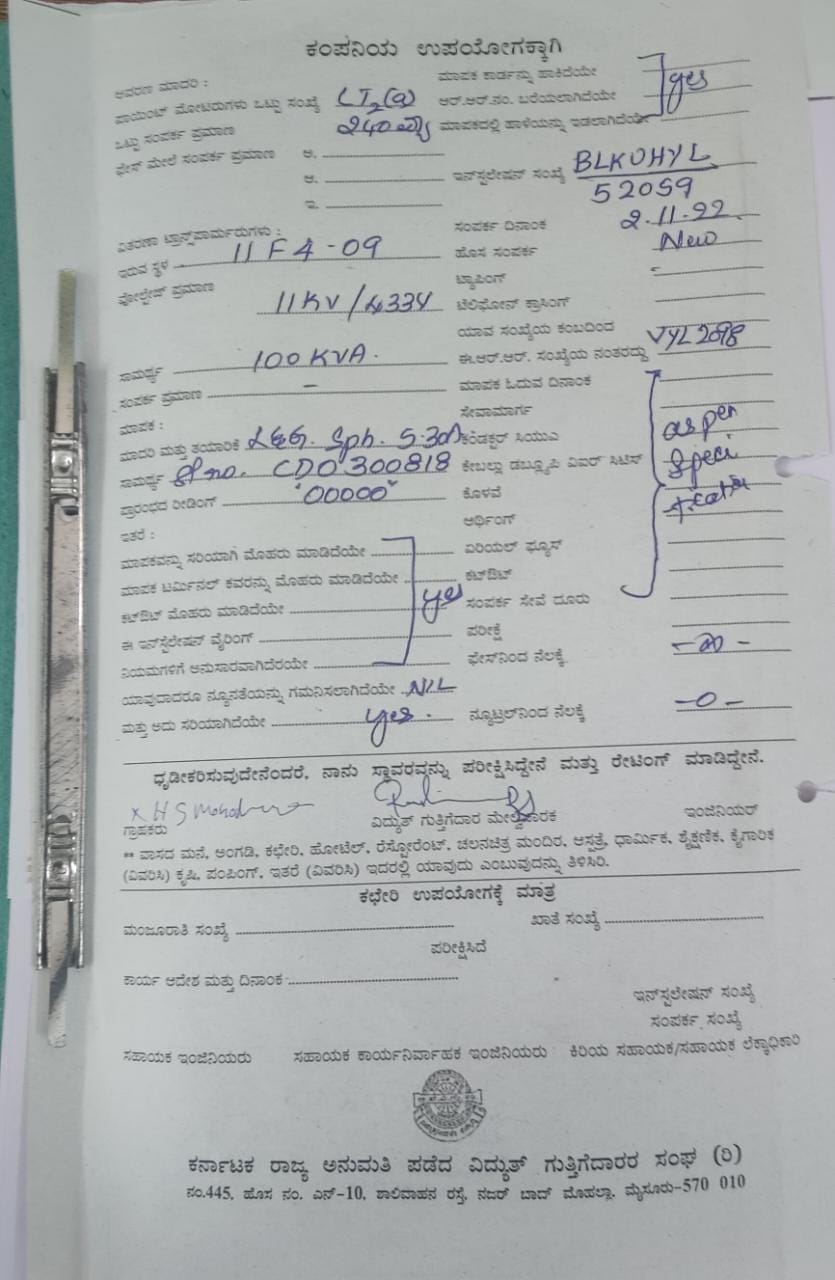 ಕಂಪನಿಯ ಉಪಯೋಗಕ್ಕಾಗಿ
ಆವರಣ ಮಾದರಿ :
ಪಾಯಿಂಟ್ ಮೋಟರುಗಳು ಒಟ್ಟು ಸಂಖ್ಯೆ LT2(a)
ಒಟ್ಟು ಸಂಪರ್ಕ ಪ್ರಮಾಣ 240
ಫೇಸ್ ಮೇಲೆ ಸಂಪರ್ಕ ಪ್ರಮಾಣ ಅ.
ಆ.
ಇ.
ವಿತರಣಾ ಟ್ರಾನ್ಸ್‌ಫಾರ್ಮರುಗಳು :
ಇರುವ ಸ್ಥಳ 11 F4-09
ವೋಲ್ಟೇಜ್ ಪ್ರಮಾಣ
11KV/433V
ಸಾಮರ್ಥ್ಯ 100 KVA.
ಸಂಪರ್ಕ ಪ್ರಮಾಣ –
ಮಾಪಕ :
ಮಾದರಿ ಮತ್ತು ತಯಾರಿಕೆ L&G. Sph. 5-30A
ಸಾಮರ್ಥ್ಯ Sl no. CDO300818
ಪ್ರಾರಂಭದ ರೀಡಿಂಗ್ "00000"
ಇತರೆ :
ಮಾಪಕವನ್ನು ಸರಿಯಾಗಿ ಮೊಹರು ಮಾಡಿದೆಯೇ
ಮಾಪಕ ಟರ್ಮಿನಲ್ ಕವರನ್ನು ಮೊಹರು ಮಾಡಿದೆಯೇ
ಕಟ್‌ಔಟ್ ಮೊಹರು ಮಾಡಿದೆಯೇ yes
ಈ ಇನ್‌ಸ್ಟಲೇಷನ್ ವೈರಿಂಗ್
ನಿಯಮಗಳಿಗೆ ಅನುಸಾರವಾಗಿದೆರಯೇ
ಯಾವುದಾದರೂ ನ್ಯೂನತೆಯನ್ನು ಗಮನಿಸಲಾಗಿದೆಯೇ NIL
ಮತ್ತು ಅದು ಸರಿಯಾಗಿದೆಯೇ yes.
ಮಾಪಕ ಕಾರ್ಡನ್ನು ಹಾಕಿದೆಯೇ
ಆರ್.ಆರ್.ನಂ. ಬರೆಯಲಾಗಿದೆಯೇ yes
ಮಾಪಕದಲ್ಲಿ ಹಾಳೆಯನ್ನು ಇಡಲಾಗಿದೆಯೇ
ಇನ್‌ಸ್ಟಲೇಷನ್ ಸಂಖ್ಯೆ BLKUHYL
52059
ಸಂಪರ್ಕ ದಿನಾಂಕ 2-11-22
ಹೊಸ ಸಂಪರ್ಕ New
ಟ್ಯಾಪಿಂಗ್
ಟೆಲಿಫೋನ್ ಕ್ರಾಸಿಂಗ್
ಯಾವ ಸಂಖ್ಯೆಯ ಕಂಬದಿಂದ
ಈ.ಆರ್.ಆರ್. ಸಂಖ್ಯೆಯ ನಂತರದ್ದು VYL2898
ಮಾಪಕ ಓದುವ ದಿನಾಂಕ
ಸೇವಾಮಾರ್ಗ
ಕಂಡಕ್ಟರ್ ಸಿಯುಎ as per
ಕೇಬಲ್ಲಾ ಡಬ್ಲ್ಯೂಪಿ ವಿಐಆರ್ ಸಿಟಿಸ್ speci
ಕೊಳವೆ fication
ಅರ್ಥಿಂಗ್
ಏರಿಯಲ್ ಫ್ಯೂಸ್
ಕಟ್‌ಔಟ್
ಸಂಪರ್ಕ ಸೇವೆ ದೂರು
ಪರೀಕ್ಷೆ
ಫೇಸ್‌ನಿಂದ ನೆಲಕ್ಕೆ
ನ್ಯೂಟ್ರಲ್‌ನಿಂದ ನೆಲಕ್ಕೆ -0-
ಧೃಡೀಕರಿಸುವುದೇನೆಂದರೆ, ನಾನು ಸ್ಥಾವರವನ್ನು ಪರೀಕ್ಷಿಸಿದ್ದೇನೆ ಮತ್ತು ರೇಟಿಂಗ್ ಮಾಡಿದ್ದೇನೆ.
ಗ್ರಾಹಕರು ವಿದ್ಯುತ್ ಗುತ್ತಿಗೆದಾರ ಮೇಲ್ವಿಚಾರಕ ಇಂಜಿನಿಯರ್
** ವಾಸದ ಮನೆ, ಅಂಗಡಿ, ಕಛೇರಿ, ಹೋಟೆಲ್, ರೆಸ್ಟೋರೆಂಟ್, ಚಲನಚಿತ್ರ ಮಂದಿರ, ಆಸ್ಪತ್ರೆ, ಧಾರ್ಮಿಕ, ಶೈಕ್ಷಣಿಕ, ಕೈಗಾರಿಕ
(ವಿವರಿಸಿ) ಕೃಷಿ, ಪಂಪಿಂಗ್, ಇತರೆ (ವಿವರಿಸಿ) ಇದರಲ್ಲಿ ಯಾವುದು ಎಂಬುವುದನ್ನು ತಿಳಿಸಿರಿ.
ಕಛೇರಿ ಉಪಯೋಗಕ್ಕೆ ಮಾತ್ರ
ಮಂಜೂರಾತಿ ಸಂಖ್ಯೆ ಖಾತೆ ಸಂಖ್ಯೆ
ಪರೀಕ್ಷಿಸಿದೆ
ಕಾರ್ಯ ಆದೇಶ ಮತ್ತು ದಿನಾಂಕ
ಇನ್‌ಸ್ಟಲೇಷನ್ ಸಂಖ್ಯೆ
ಸಂಪರ್ಕ ಸಂಖ್ಯೆ
ಸಹಾಯಕ ಇಂಜಿನಿಯರು ಸಹಾಯಕ ಕಾರ್ಯನಿರ್ವಾಹಕ ಇಂಜಿನಿಯರು ಕಿರಿಯ ಸಹಾಯಕ/ಸಹಾಯಕ ಲೆಕ್ಕಾಧಿಕಾರಿ
ಕರ್ನಾಟಕ ರಾಜ್ಯ ಅನುಮತಿ ಪಡೆದ ವಿದ್ಯುತ್ ಗುತ್ತಿಗೆದಾರರ ಸಂಘ (ರಿ)
ನಂ.445, ಹೊಸ ನಂ. ಎನ್-10, ಶಾಲಿವಾಹನ ರಸ್ತೆ, ನಜರ್ ಬಾದ್ ಮೊಹಲ್ಲಾ, ಮೈಸೂರು-570 010